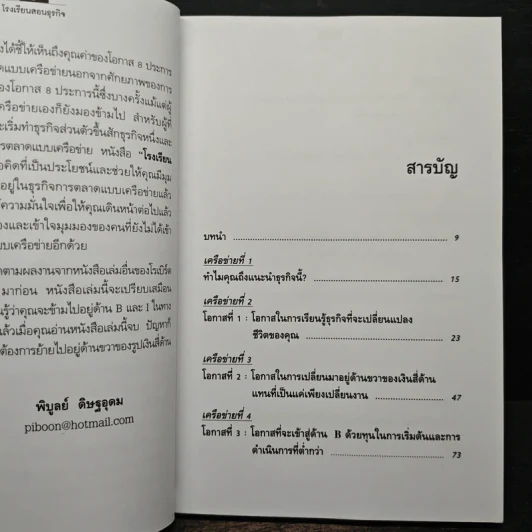 โรงเรียนสอนธุรกิจ
งได้ชี้ให้เห็นถึงคุณค่าของโอกาส 8 ประการ
ดแบบเครือข่ายนอกจากศักยภาพของการ
องโอกาส 8 ประการนี้ซึ่งบางครั้งแม้แต่ผู้
ครือข่ายเองก็ยังมองข้ามไป สำหรับผู้ที่
ะเริ่มทำธุรกิจส่วนตัวขึ้นสักธุรกิจหนึ่งและ
รตลาดแบบเครือข่าย หนังสือ "โรงเรียน
อคิดที่เป็นประโยชน์และช่วยให้คุณมีมุม
อยู่ในธุรกิจการตลาดแบบเครือข่ายแล้ว
ห้ความมั่นใจเพื่อให้คุณเดินหน้าต่อไปแล้ว
องและเข้าใจมุมมองของคนที่ยังไม่ได้เข้า
บบเครือข่ายอีกด้วย
ดตามผลงานจากหนังสือเล่มอื่นของโรเบิร์ต
มาก่อน หนังสือเล่มนี้จะเปรียบเสมือน
นรู้ว่าคุณจะข้ามไปอยู่ด้าน B และ I ในทาง
แล้วเมื่อคุณอ่านหนังสือเล่มนี้จบ ปัญหาก็
ต้องการย้ายไปอยู่ด้านขวาของรูปเงินสี่ด้าน
พิบูลย์ ดิษฐอุดม
piboon@hotmail.com
สารบัญ
บทนำ 9
เครือข่ายที่ 1
ทำไมคุณถึงแนะนำธุรกิจนี้? 15
เครือข่ายที่ 2
โอกาสที่ 1 : โอกาสในการเรียนรู้ธุรกิจที่จะเปลี่ยนแปลง
ชีวิตของคุณ 23
เครือข่ายที่ 3
โอกาสที่ 2 : โอกาสในการเปลี่ยนมาอยู่ด้านขวาของเงินสี่ด้าน
แทนที่เป็นแค่เพียงเปลี่ยนงาน 47
เครือข่ายที่ 4
โอกาสที่ 3 : โอกาสที่จะเข้าสู่ด้าน B ด้วยทุนในการเริ่มต้นและการ
ดำเนินการที่ต่ำกว่า 73